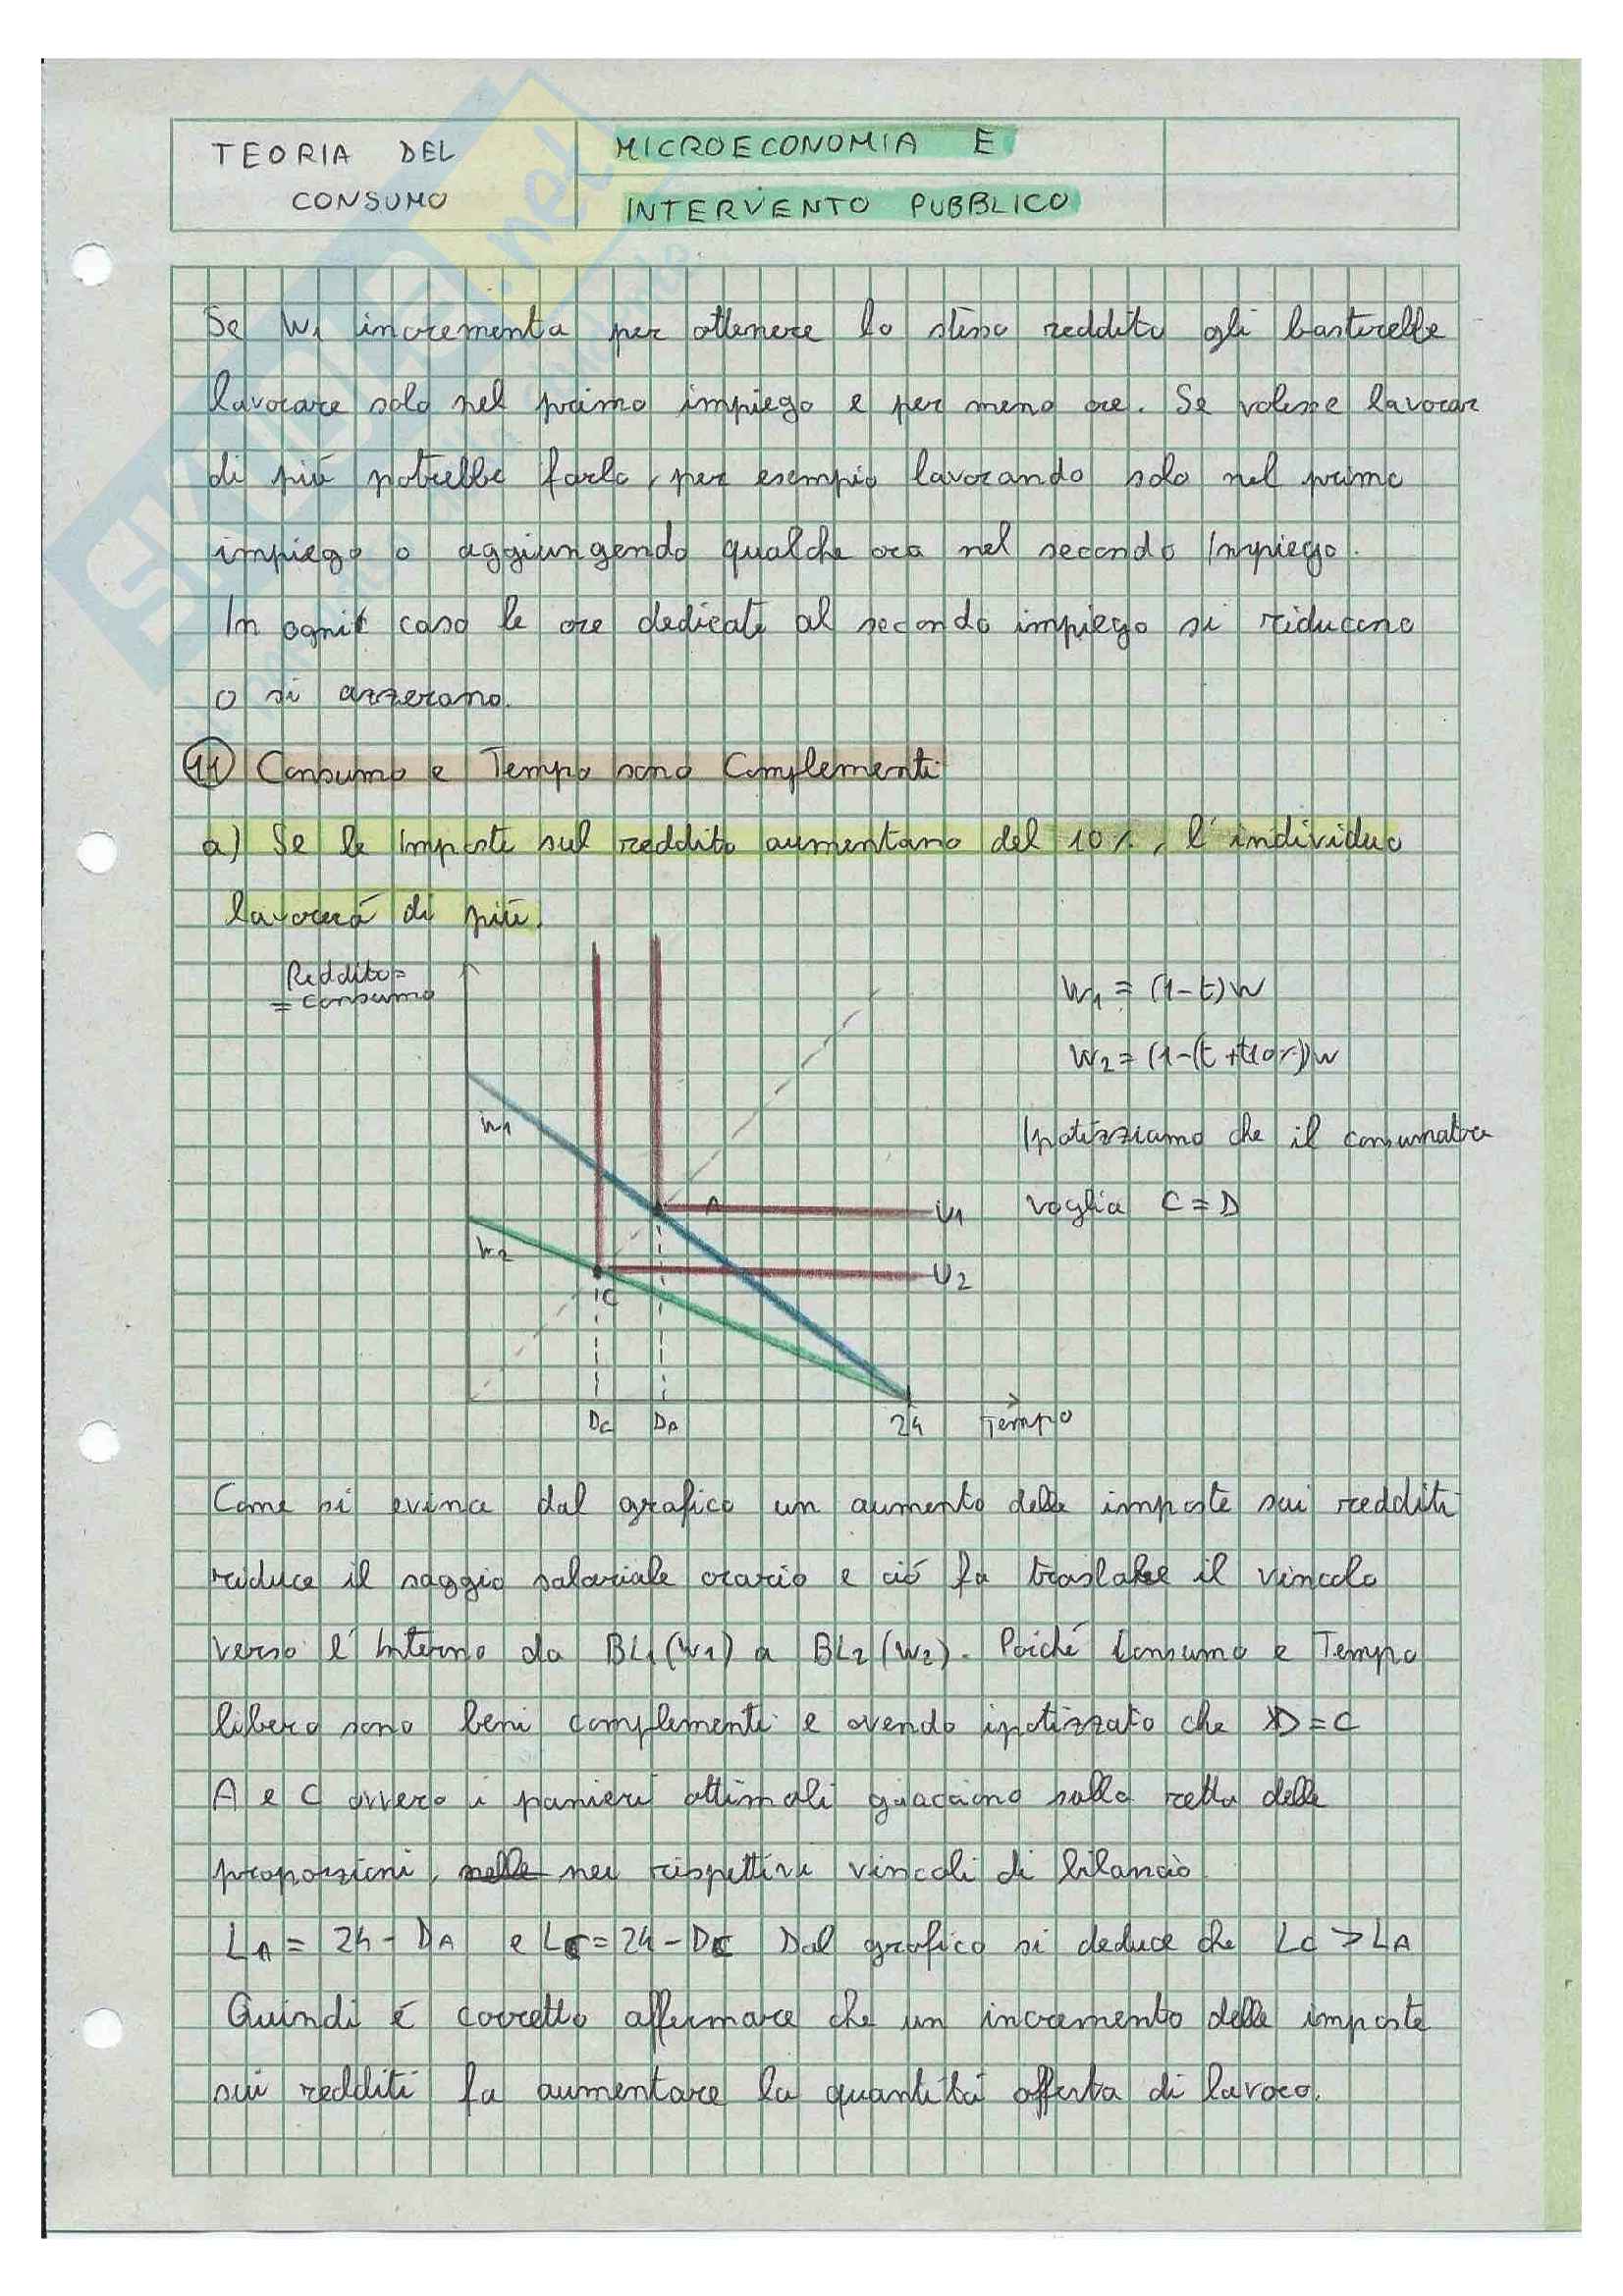 TEORIA DEL
CONSUMO
MICROECONOMIA E
INTERVENTO PUBBLICO
Se W1 incrementa per ottenere lo stesso reddito gli basterebbe
lavorare solo nel primo impiego e per meno ore. Se volesse lavorar
di piú potrebbe farlo, per esempio lavorando solo nel primo
impiego o aggiungendo qualche ora nel secondo Impiego.
In ogni caso le ore dedicate al secondo impiego si riducono
o si azzerano.
11 Consumo e Tempo sono Complementi
a) Se le Imposte sul reddito aumentano del 10%, l'individuo
lavorerá di piú.
Reddito=
= consumo
W1 = (1-t)W
W2 = (1-(t+t10%))W
W1
Ipotizziamo che il consumatore
A
U1
voglia C = D
W2
U2
C
DC DA 24 Tempo
Come si evince dal grafico un aumento delle imposte sui redditi
riduce il saggio salariale orario e ció fa traslare il vincolo
verso l'interno da BL1(W1) a BL2(W2). Poiché Consumo e Tempo
libero sono beni complementi e avendo ipotizzato che D=C
A e C ovvero i panieri ottimali giacciono sulla retta delle
proporzioni, nei rispettivi vincoli di bilancio
LA = 24 - DA e LC = 24 - DC Dal grafico si deduce che LC > LA
Quindi é corretto affermare che un incremento delle imposte
sui redditi fa aumentare la quantitá offerta di lavoro.
SKUOLA.net